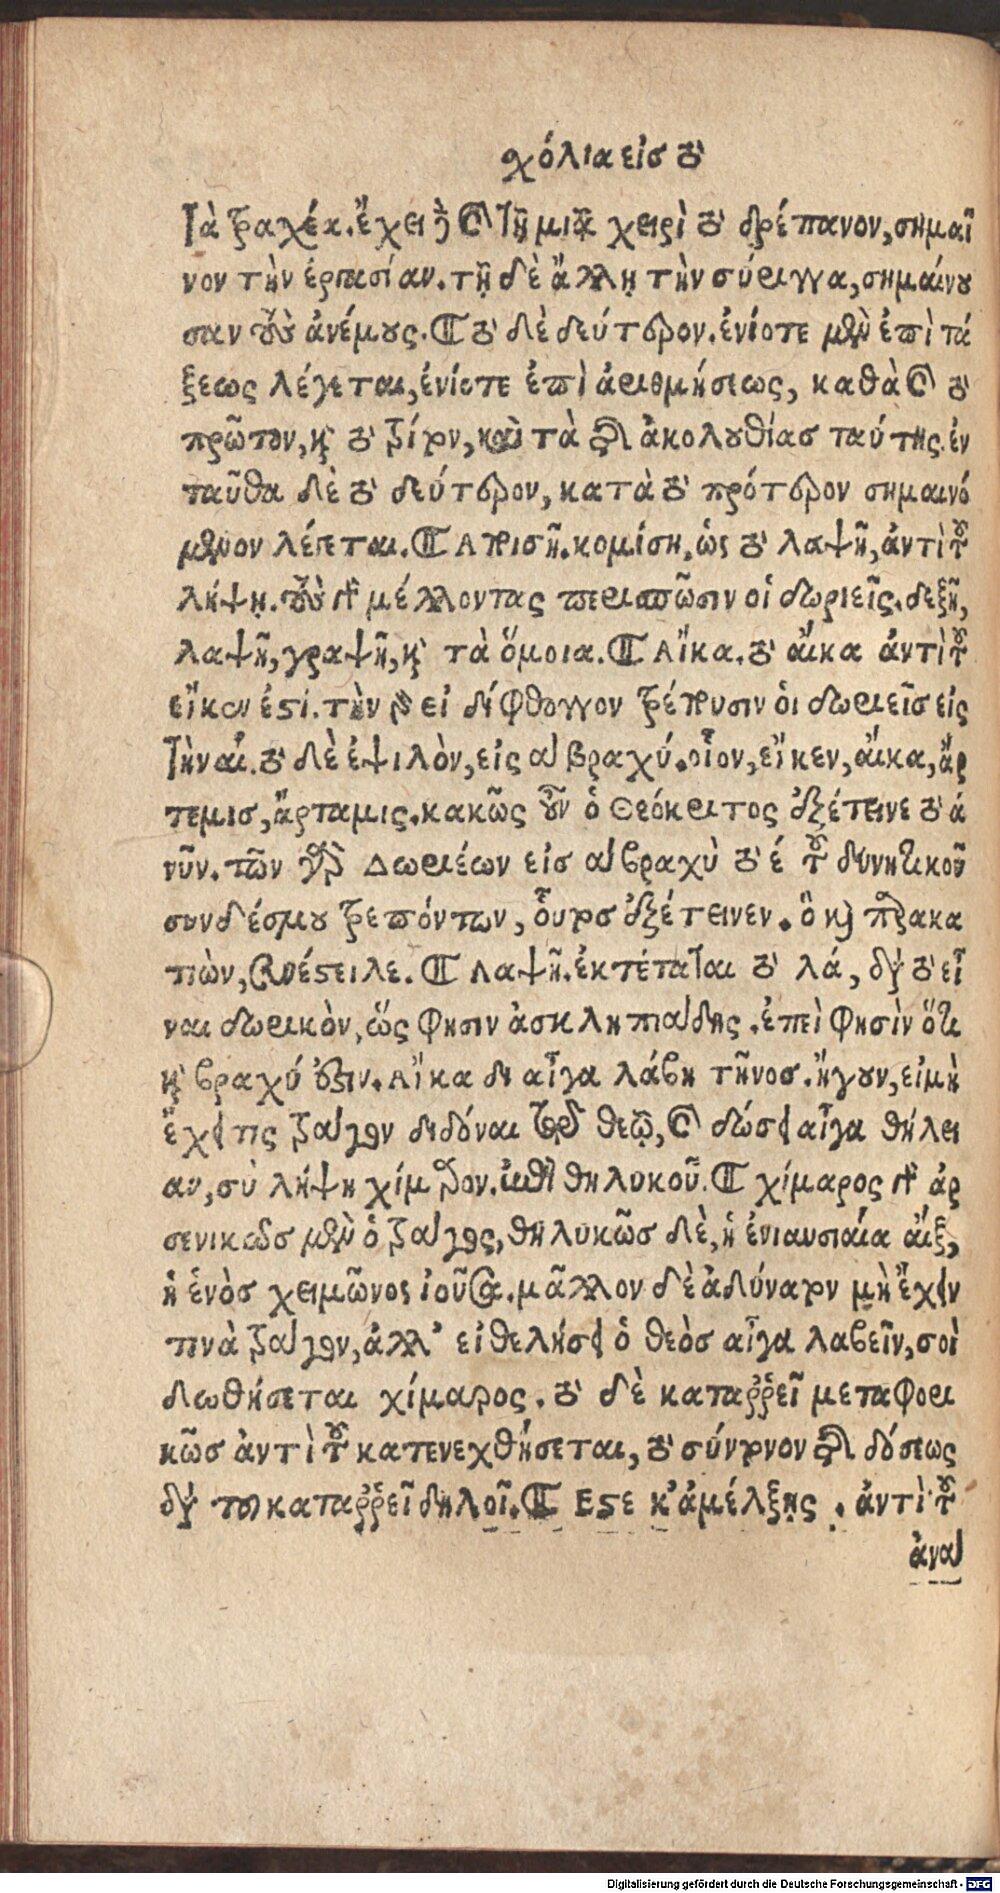 σχόλια εἰσ τὸ
τὰ τραχέα. ἔχει δὲ καὶ τῇ μιᾷ χειρὶ τὸ δρέπανον, σημαῖ
νον τὴν ἐρπασίαν. τῇ δὲ ἄλλῃ τὴν σύριγγα, σημαίνου
σαν τοὺς ἀνέμους. ¶ τὸ δὲ δεύτερον. ἐνίοτε μὲν ἐπὶ τά
ξεως λέγεται, ἐνίοτε ἐπὶ ἀριθμήσεως, καθὰ καὶ τὸ
πρῶτον, καὶ τὸ τρίτον, καὶ τὰ τῆς ἀκολουθίασ ταύτης. ἐν
ταῦθα δὲ τὸ δεύτερον, κατὰ τὸ πρότερον σημαινό
μενον λέγεται. ¶ Αποισῆ. κομίση, ὡς τὸ λαψῆ, ἀντὶ τοῦ
λήψῃ. τοὺς γὰρ μέλλοντας περισπῶσιν οἱ δωριεῖς. δεξῆ,
λαψῆ, γραψῆ, καὶ τὰ ὅμοια. ¶ Αἴκα. τὸ αἴκα ἀντὶ τοῦ
εἴκεν ἐστί. τὴν γὰρ ει δίφθογγον τρέπουσιν ὁι δωριεῖσ εἰς
τὴν αι. τὸ δὲ ἐψιλὸν, εἰς α βραχύ. οἷον, εἴκεν, αἴκα, ἄρ
τεμισ, ἄρταμις. κακῶς οὖν ὁ Θεόκριτος ἐξέτεινε τὸ ά
νῦν. τῶν γὰρ Δωριέων εἰσ α βραχὺ τὸ έ τοῦ δυνητικοῦ
συνδέσμου τρεπόντων, οὗτοσ ἐξέτεινεν. ὃ καὶ παρακα
τιὼν, συνέστειλε. ¶ Λαψῆ. ἐκτέταται τὸ λά, διὰ τὸ εἶ
ναι δωρικὸν, ὥς φησιν ἀσκληπιάδης. ἐπεὶ φησὶν ὅτι
καὶ βραχύ ἐστιν. Αἴκα δι αἶγα λάβη τῆνοσ. ἤγουν, εἰ μὴ
ἔχει τις τράγον διδόναι τῷ θεῷ, καὶ δώσει αἶγα θήλει
αν, σὺ λήψη χίμαρον. ἐπὶ θηλυκοῦ. ¶ χίμαρος γὰρ ἀρ
σενικῶσ μὲν ὁ τράγος, θηλυκῶσ δὲ, ἡ ἐνιαυσιαία αἴξ,
ἡ ἑνὸσ χειμῶνος ἰοῦσα. μᾶλλον δὲ ἀδύνατον μὴ ἔχειν
τινὰ τράγον, ἀλλ’ εἰ θελήσει ὁ θεὸσ αἶγα λαβεῖν, σοὶ
δωθήσεται χίμαρος. τὸ δὲ καταῤῥεῖ μεταφορι
κῶσ ἀντὶ τοῦ κατενεχθήσεται, τὸ σύντονον τῆς δόσεως
διὰ τοῦ καταῤῥεῖ δηλοῖ. ¶ Εστε κ’ ἀμέλξῃς. ἀντὶ τοῦ
ἀνα
Digitalisierung gefördert durch die Deutsche Forschungsgemeinschaft - DFG